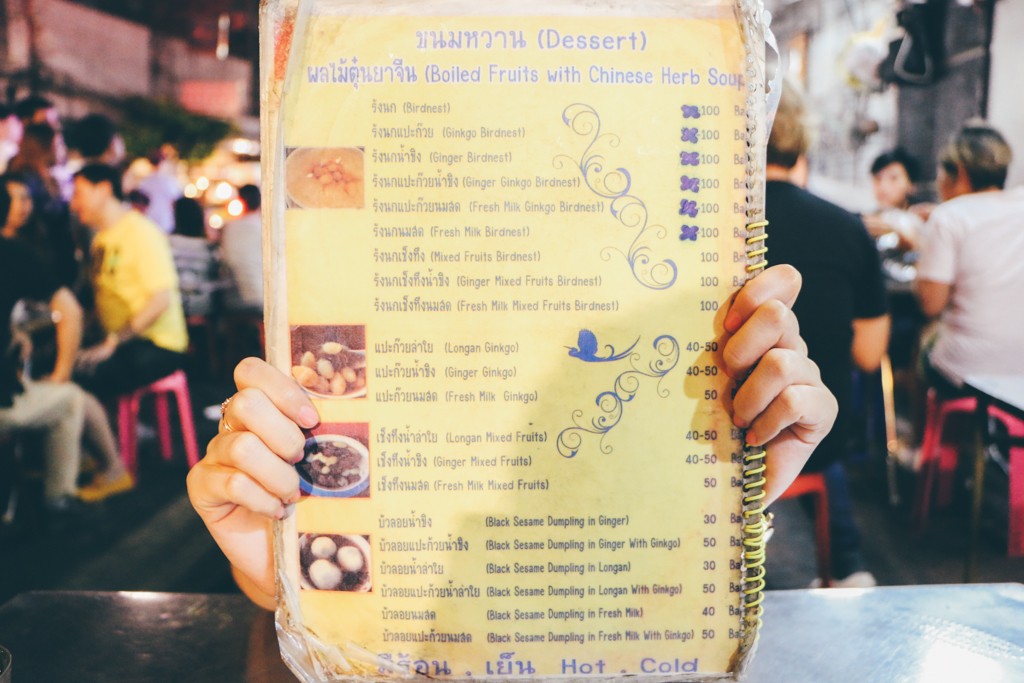 ขนมหวาน (Dessert)
ผลไม้ตุ๋นยาจีน (Boiled Fruits with Chinese Herb Soup
รังนก (Birdnest) 100 Ba
รังนกแปะก๊วย (Ginkgo Birdnest) 100 Ba
รังนกน้ำขิง (Ginger Birdnest) 100 Ba
รังนกแปะก๊วยน้ำขิง (Ginger Ginkgo Birdnest) 100 Ba
รังนกแปะก๊วยนมสด (Fresh Milk Ginkgo Birdnest) 100 Ba
รังนกนมสด (Fresh Milk Birdnest) 100 Ba
รังนกเช็งทึง (Mixed Fruits Birdnest) 100 Ba
รังนกเช็งทึงน้ำขิง (Ginger Mixed Fruits Birdnest) 100
รังนกเช็งทึงนมสด (Fresh Milk Mixed Fruits Birdnest) 100
แปะก๊วยลำใย (Longan Ginkgo) 40-50
แปะก๊วยน้ำขิง (Ginger Ginkgo) 40-50
แปะก๊วยนมสด (Fresh Milk Ginkgo) 50
เช็งทึงน้ำลำใย (Longan Mixed Fruits) 40-50 Ba
เช็งทึงน้ำขิง (Ginger Mixed Fruits) 40-50 Ba
เช็งทึงนมสด (Fresh Milk Mixed Fruits) 50 Ba
บัวลอยน้ำขิง (Black Sesame Dumpling in Ginger) 30 Ba
บัวลอยแปะก๊วยน้ำขิง (Black Sesame Dumpling in Ginger With Ginkgo) 50 Ba
บัวลอยน้ำลำใย (Black Sesame Dumpling in Longan) 30 Ba
บัวลอยแปะก๊วยน้ำลำใย (Black Sesame Dumpling in Longan With Ginkgo) 50 Ba
บัวลอยนมสด (Black Sesame Dumpling in Fresh Milk) 40 Ba
บัวลอยแปะก๊วยนมสด (Black Sesame Dumpling in Fresh Milk With Ginkgo) 50 Ba
มีร้อน . เย็น Hot . Cold